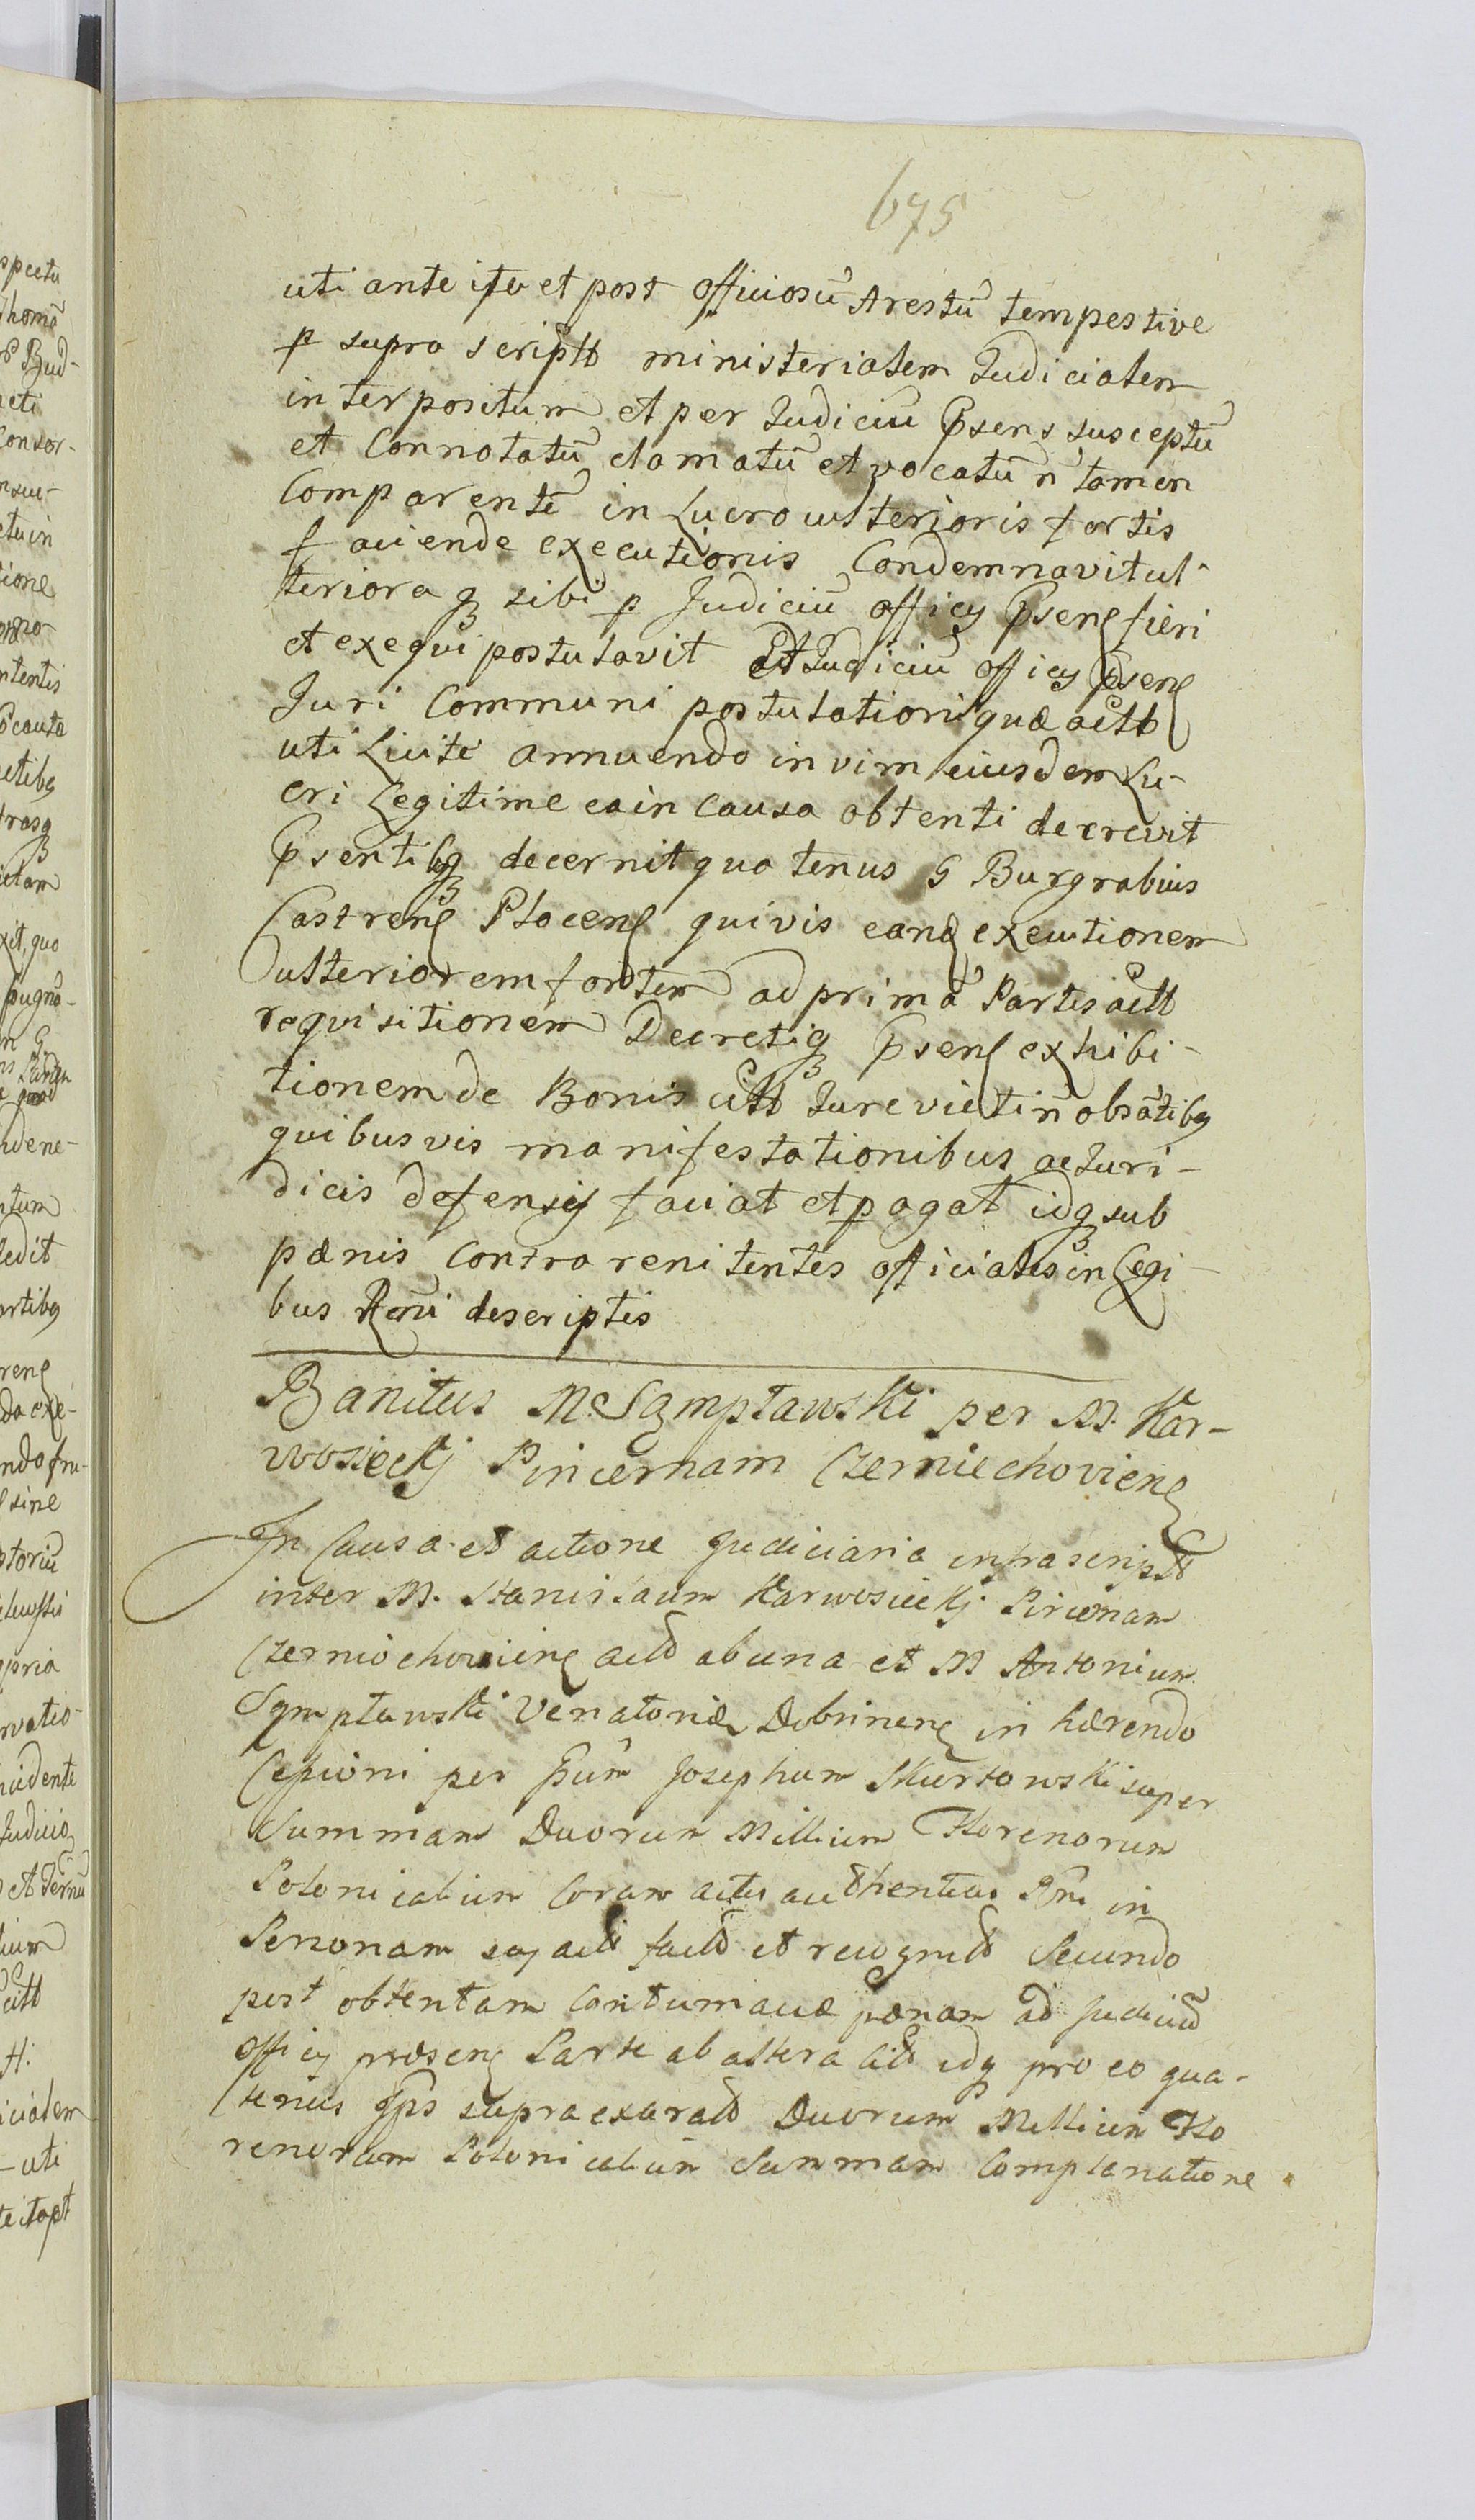 675
uti ante ita et post officiosũ Arestũ tempestive
p supra scriptt ministerialem Judicialem
interpositum et per Judiciũ Psens susceptũ
et Connotatũ clamatũ et vocatũ ñ tamen
Comparentẽ in Lucro ulterioris fortis
faciende executionis Condemnavit ul-
teriora q sibi p Judiciũ officy Psens fieri
et exequi postulavit Et Judiciũ officy Psens
Juri Communi postulationi quæ actt
uti Licite annuendo in vim eiusdem Lu-
cri Legitime ea in causa obtenti decrevit
Psentibq decernit quatenus G Burgrabius
Castrens Plocens quivis eand executionem
ulteriorem fortem ad primã Partis actt
requisitionem Decretiq Psens exhibi-
tionem de Bonis citt Jure victi ñ obsãtibq
quibusvis manifestationibus ac Juri-
dicis defensis faciat et pagat idq sub
pænis contra renitentes officiales in Legi-
bus Rñi descriptis
Banitus M. Sąmpławski per M. Kar-
wosieckj Pincernam Czerniechoviens
In Causa et actione Judiciaria infrascriptt
inter M. Stanislaum Karwosieckj Pincernam
Czerniechoviens actt ab una et M Antonium
Sąmpławski Venatoriđ Dobrinens in hærendo
Cessioni per Gũm Josephum Skurtowski super
Summam Duorum Millium Florenorum
Polonicalium Coram actis authenticis Rñi in
Personam sej actt factt et recognitt Secundo
post obtentam Contumaciæ pænam ad Judiciũ
officy præsens Parte ab altera citt idq pro eo qua-
tenus Ips supra exaratt Duorum Millium Flo
renorum Polonicalium Summam Complanatione